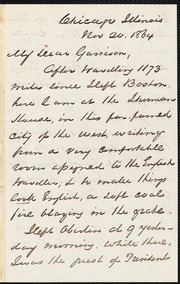 Chicago Illinois
Nov 20. 1864
My Dear Garrison,
After travelling 1173
miles since I left Boston,
here I am at the Sherman
House, in this far famed
city of the west, writing
from a very comfortable
room assigned to the English
traveller, & to make things
look English, a soft coal
fire blazing in the grate.
I left Oberlin at 9 yester-
day morning. While there,
I was the guest of President